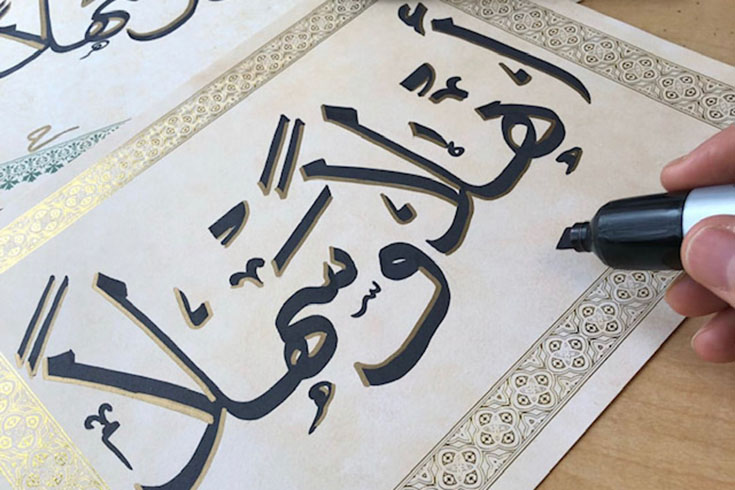 أَهْلًا وَسَهْلًا